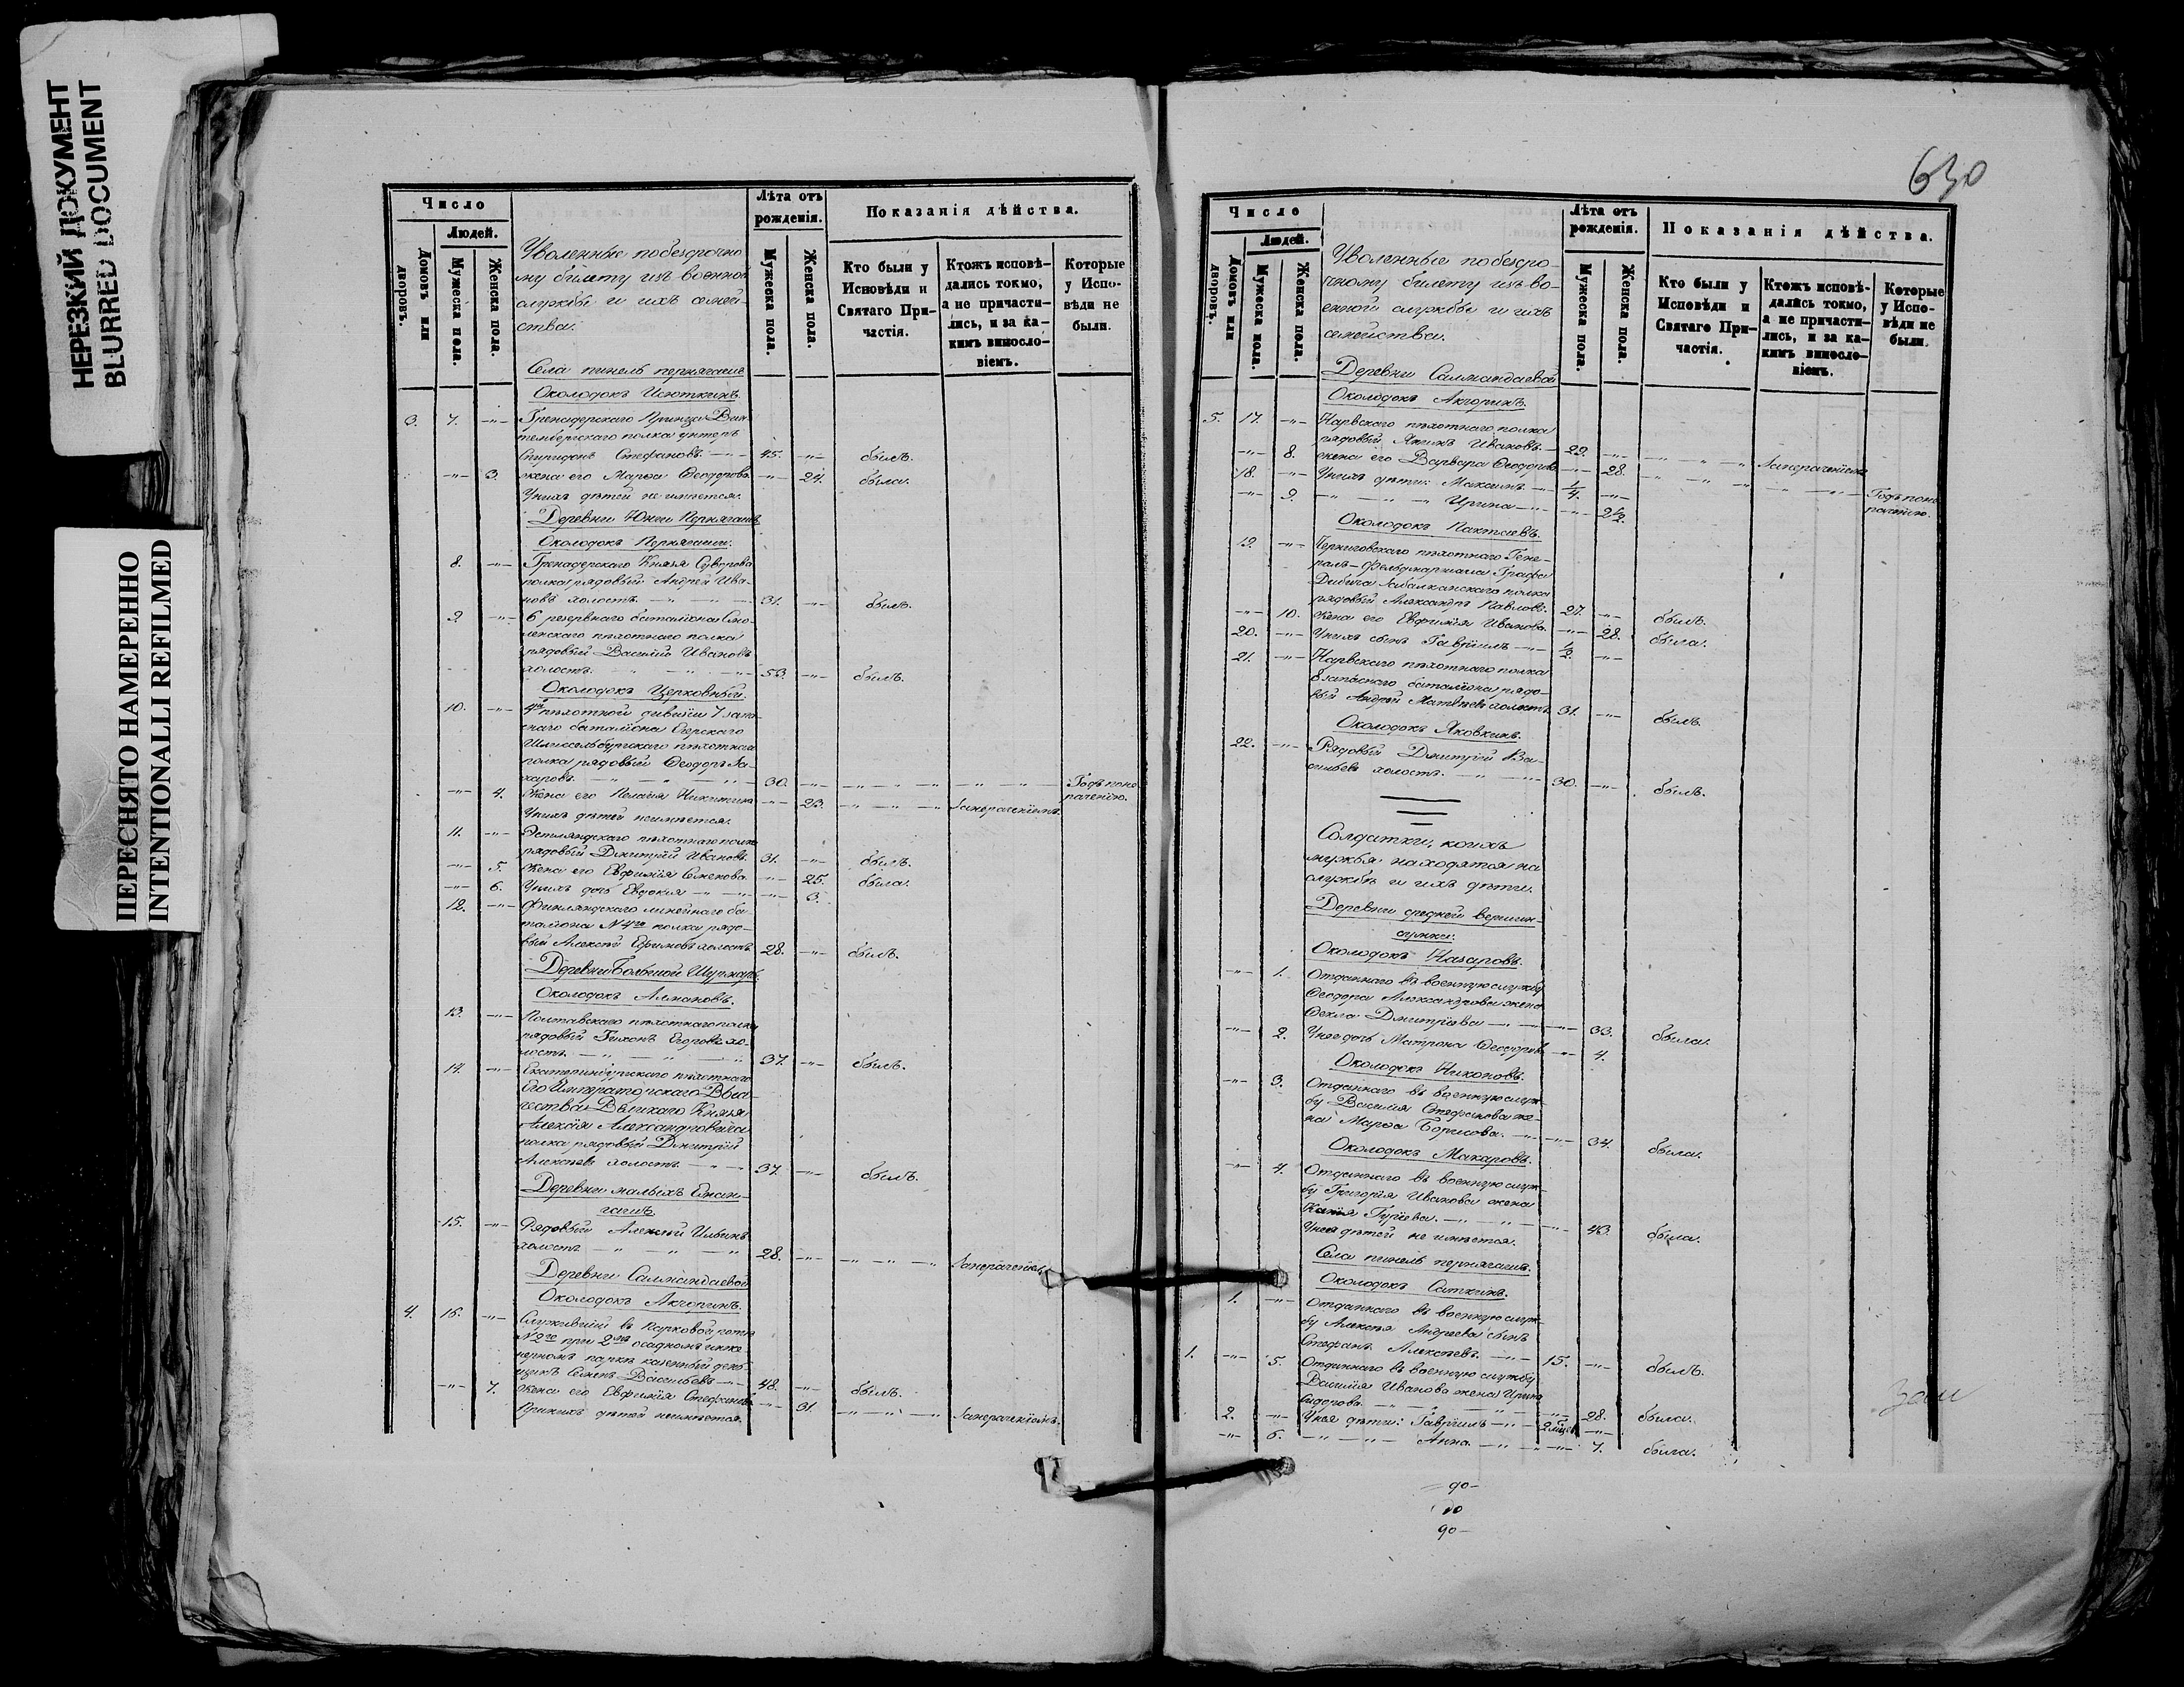 НЕРЕЗКИЙ ДОКУМЕНТ
BLURRED DOCUMENT
ПЕРЕСНЯТО НАМЕРЕННО
INTENTIONALLI REFILMED
Число
Людей.
Домовъ или дворовъ.
Мужеска пола.
Женска пола.
Уволенные побезсрочно
му билету изъ военной
службы и ихъ семей-
ства.
Лѣта отъ
рожденія.
Мужеска пола.
Женска пола.
Показанія дѣйства.
Кто были у
Исповѣди и
Святаго При-
частія.
Ктожъ исповѣ-
дались токмо,
а не причасти-
лись, и за ка-
кимъ винослo-
віемъ.
Которые
у Испо-
вѣди не
были.
Села
Околодокъ
3. 7. -"- Гренадерскаго Принца Вир
тембергскаго полка унтеръ
Спиридонъ Стефановъ -"- 45. -"- былъ.
-"- 3. жена его Марѳа Ѳеодорова -"- 24. была.
Унихъ дѣтей не имѣется.
Деревни Юнги
Околодокъ
8. -"- Гренадерскаго Князя Суворова
полка рядовый Андрей Ива-
новъ холостъ -"- -"- 31. -"- былъ.
9. -"- 6 резервнаго баталіона Смо-
ленскаго пѣхотнаго полка
рядовый Василій Ивановъ
холостъ -"- -"- 53. -"- былъ.
Околодокъ Церковный.
10. -"- 4й пѣхотной дивизіи 7 запа
снаго баталіона
Шлиссельбургскаго пѣхотнаго
полка рядовый Ѳеодоръ За-
харовъ -"- -"- 30. -"- -"- -"- Годъ поне
раченію.
-"- 4. Жена его Пелагія Никитина -"- 23. -"- Занераченіемъ.
Унихъ дѣтей неимѣется.
11. -"- Эстляндскаго пѣхотнаго полка
рядовый Дмитрій Ивановъ 31. -"- былъ.
-"- 5. Жена его Евфимія Семенова -"- 25. была.
-"- 6. Унихъ дочь Евдокія -"- -"- 3.
12. -"- Финляндскаго линейнаго ба
таліона N 4го полка рядо-
вый Алексѣй Ефимовъ холостъ 28. -"- былъ.
Деревни Большой
Околодокъ
13. -"- Полтавскаго пѣхотнаго полка
рядовый Тихонъ Егоровъ хо-
лостъ -"- -"- 37. -"- былъ.
14. -"- Екатеринбургскаго пѣхотнаго
Его Императорскаго Высо
чества Великаго Князя
Алексія Александровича
полка рядовый Дмитрій
Алексѣевъ холостъ -"- 37. -"- былъ.
Деревни малыхъ
15. -"- Рядовый Алексѣй Ильинъ
холостъ -"- -"- 28. -"- -"- Занераченіемъ
Деревни Салмандаевой
Околодокъ Акчоринъ.
4. 16. -"- Служившій въ Парковой ротѣ
N 2го при 2мъ осадномъ инже
нерномъ паркѣ казенный день
щикъ Семенъ Васильевъ -"- 48. -"- былъ.
-"- 7. Жена его Евфимія Стефанова -"- 31. -"- Занераченіемъ.
дѣтей неимѣется.
630
Число
Людей.
Домовъ или дворовъ.
Мужеска пола.
Женска пола.
Уволенные побезсро-
чному билету изъ во-
енной службы и ихъ
семейства.
Лѣта отъ
рожденія.
Мужеска пола.
Женска пола.
Показанія дѣйства.
Кто были у
Исповѣди и
Святаго При-
частія.
Ктожъ исповѣ-
дались токмо,
а не причасти-
лись, и за ка-
кимъ винослo-
віемъ.
Которые
у Испо-
вѣди не
были.
Деревни Салмандаевой
Околодокъ Акчоринъ.
5. 17. -"- Нарвскаго пѣхотнаго полка
рядовый Ивановъ. 29. -"-
-"- 8. жена его Варвара Ѳеодорова -"- 28. -"- Занераченіемъ
18. -"- Унихъ дѣти: Максимъ -"- 1/4. -"- -"- Годъ поне
раченію.
-"- 9. -"- -"- Ирина -"- -"- 2 1/2.
Околодокъ
19. -"- Черниговскаго пѣхотнаго Гене-
ралъ-Фельдмаршала Графа
Дибича Забалканскаго полка
рядовый Александръ Павловъ. 27. -"- былъ.
-"- 10. Жена его Евфимія Иванова -"- 28. была.
20. -"- Унихъ сынъ Гавріилъ -"- 1/2. -"-
21. -"- Нарвскаго пѣхотнаго полка
8 запаснаго баталіона рядо-
вый Андрей Матвѣевъ холостъ 31. -"- былъ.
Околодокъ Яковкинъ.
22. -"- Рядовый Дмитрій Ва-
сильевъ холостъ -"- 30. -"- былъ.
Солдатки, коихъ
мужья находятся на
службѣ и ихъ дѣти.
Деревни средней
Околодокъ Назаровъ.
-"- 1. Отданнаго въ военную службу
Ѳеодора Александрова жена
Ѳекла Дмитріева -"- -"- 33. была.
-"- 2. Унея дочь Матрона Ѳеодорова -"- 4.
Околодокъ Никоновъ.
-"- 3. Отданнаго въ военную служ-
бу Василія Стефанова же-
на Марѳа Борисова. -"- -"- 34. была.
Околодокъ Макаровъ.
-"- 4. Отданнаго въ военную служ-
бу Григорія Иванова жена
Гуріева. -"- -"- 43. была.
Унея дѣтей не имѣется.
Села
Околодокъ
1. -"- Отданнаго въ военную служ-
бу Алексѣя Андреева сынъ
Стефанъ Алексѣевъ. -"- 15. -"- былъ.
1. -"- 5. Отданнаго въ военную службу
Василія Иванова жена Ирина
Сидорова. -"- -"- 28. была.
2. -"- Унея дѣти: Гавріилъ -"- -"-
-"- 6. -"- -"- Анна -"- -"- 7. была.
90-
10
90-